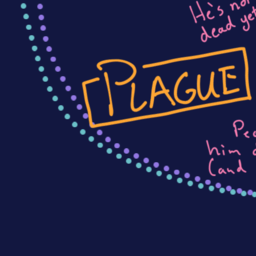 He's not
dead yet
PLAGUE
him
(and